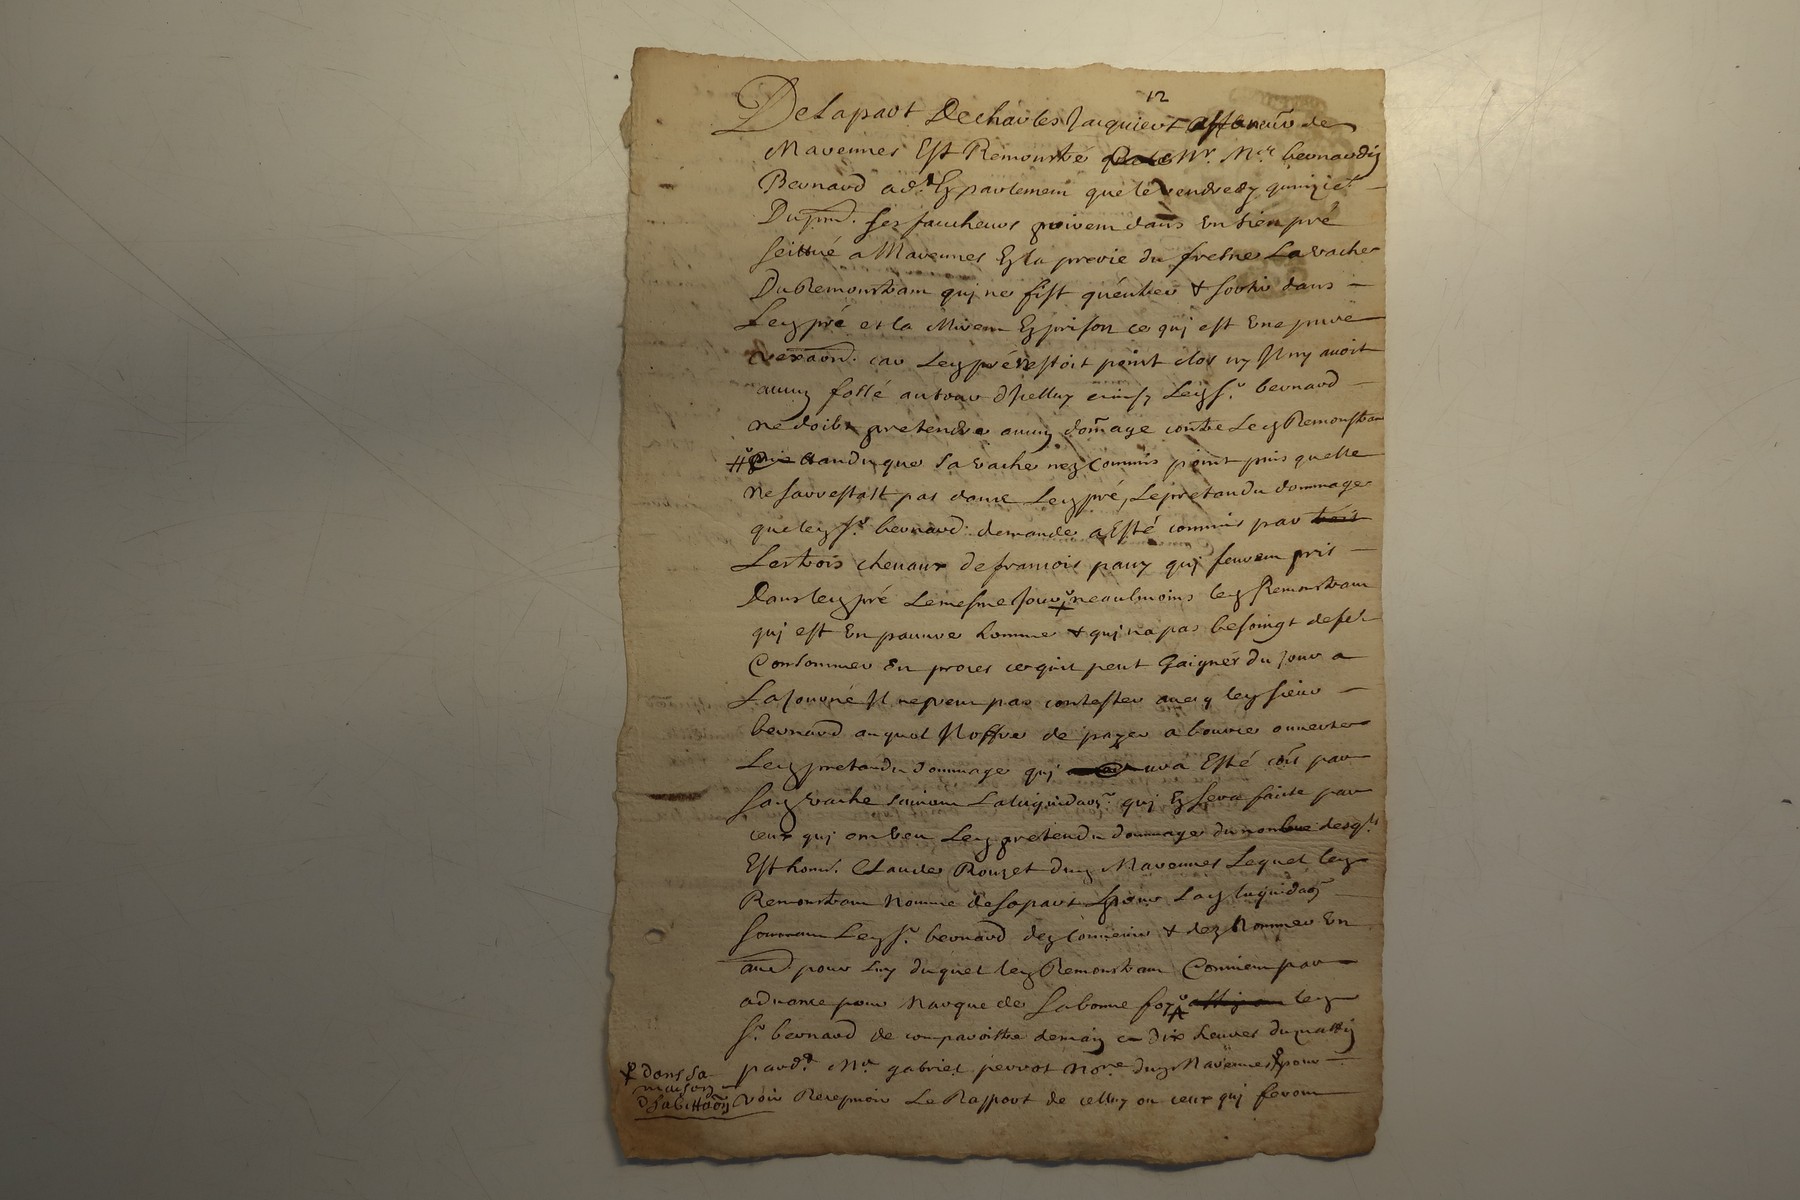 12
De la part De charles Jacquiert affeneur de
Mavennes Est Remonstré Mr. Mre bernardin
Bernard adt. En parlemem que le vendredy quinzie.
Du pnt. ses faucheurs prirem dans Un sien pré
seittué a Mavennes En la prerie du fresne La vache
Du Remonstram qui ne fist qu'entrer & sortir dans
Led pré et la Mirem En prison ce qui est Une pure
vexaon. car Led pré n'estoit point clos ny Il ny auoit
aucun fossé autour d'Icelluy ainsy Led Sr. bernard
ne doibt pretendre aucun dommage contre Led Remonstram
attandu que sa vache n'en commis point puis quelle
ne s'arrestast pas dans Led pré, Le pretandu dommage
que led Sr. bernard demande a Esté commis par
Les trois cheuaux de francois pauy qui feurem pris
Dans led pré Le mesme Jour neaulmoins led Remonstram
qui est Un pauure homme & qui na pas besoingt de se
Consommer En proces ce quil peut Gaigner du Jour a
La Journé Il ne peut pas contester auec led sieur
bernard auquel Il offre de payer a bource ouuerte
Led pretandu dommage qui aura Esté cõis par
sad vache suiuam La liquidaon. qui En sera faite par
ceux qui ont veu Led pretendu dommage du nombre desqls
Est hon. Claude Rouget dud Mavennes Lequel led
Remonstram Nomme de sa part pour Lad liquidaon
sommam Led Sr. bernard d'en conuenir & d'en Nommer Un
aud. pour Luy duquel led Remonstram Conuiem par
aduance pour Marque de sa bonne foy led
Sr. bernard de comparoittre demain a dix heures du mattin
pard. Mre gabriel perrot Nore dud Mavennes pour
dans sa
maison
d'habittaon
voir Recepuoir Le Rapport de celluy ou ceux qui ferom